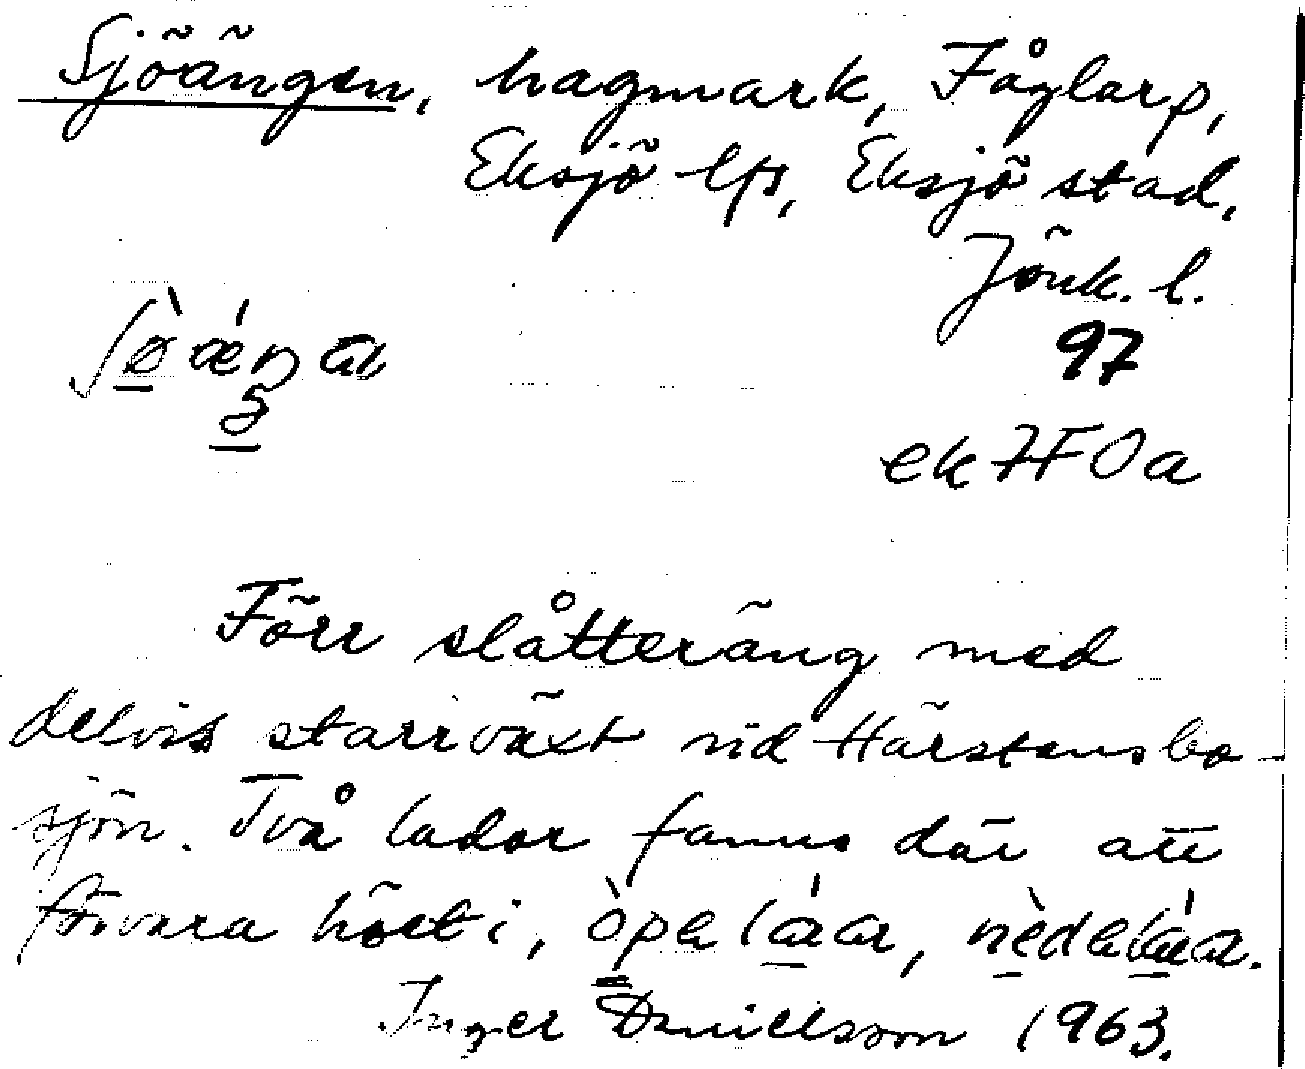 Sjöängen, hagmark, Fåglarp,
Eksjö lfs, Eksjö stad,
Jönk. l.
97
ek 7F0a
Förr slåtteräng med
delvis starrväxt vid Härstensbo-
sjön. Två lador fanns där att
förvara höet i,
Inger Danielsson 1963.